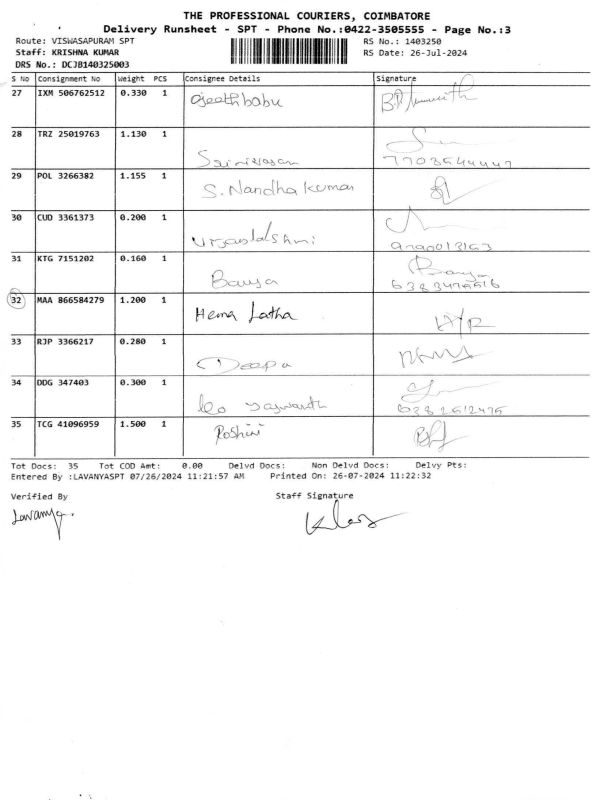 THE PROFESSIONAL COURIERS, COIMBATORE
Delivery Runsheet - SPT - Phone No.:0422-3505555 - Page No.:3
Route: VISWASAPURAM SPT
Staff: KRISHNA KUMAR
DRS No.: DCJB140325003
RS No.: 1403250
RS Date: 26-Jul-2024
S No Consignment No Weight PCS Consignee Details Signature
27 IXM 506762512 0.330 1
28 TRZ 25019763 1.130 1 Srinivasan
29 POL 3266382 1.155 1 S. Nandha kumar
30 CUD 3361373 0.200 1
31 KTG 7151202 0.160 1 Banya Banya
32 MAA 866584279 1.200 1 Hema Latha
33 RJP 3366217 0.280 1 Deepa
34 DDG 347403 0.300 1
35 TCG 41096959 1.500 1 Roshini
Tot Docs: 35 Tot COD Amt: 0.00 Delvd Docs: Non Delvd Docs: Delvy Pts:
Entered By :LAVANYASPT 07/26/2024 11:21:57 AM Printed On: 26-07-2024 11:22:32
Verified By Staff Signature
Lavanya.